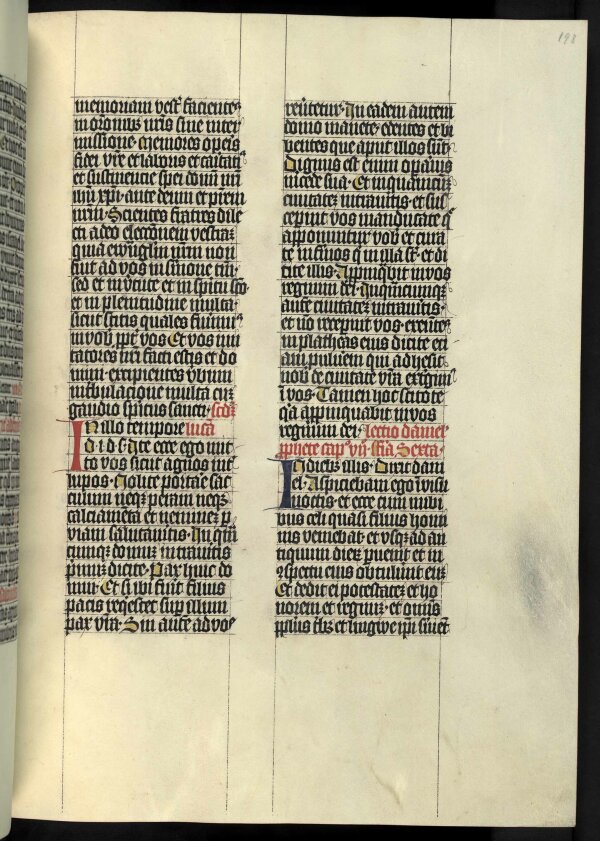 198
memoriam vestri facientes
in oronibus nris sine inter
missione. Memores operis
fidei vre et laboris et caritatis
et sustinencie spei domini nri
ihu xpi. ante deum et prem
nrm. Scientes fratres dile
cti a deo eleccionem vestram
quia ewangelium nrm non
fuit ad vos in sermone tm.
sed et in virtute et in spiritu sco
et in plenitudine multa.
sicut scitis quales fuimus
in vobis propter vos. Et vos imi
tatores nri facti estis et do
mini. excipientes verbum
in tribulacione multa cum
gaudio spiritus sancti. scdm
In illo tempore lucam
d i d s Ite ecce ego mit
to vos sicut agnos inter
lupos. Nolite portare sac
culum neque peram neque
calciamenta et neminem per
viam salutaveritis. In quam
cumque domum intraveritis
primum dicite. Pax huic do
mui. Et si ibi fuerit filius
pacis requiescet super illum
pax vra. Sin autem ad vos
revertetur. In eadem autem
domo manete. edentes et bi
bentes que aput illos sunt.
Dignus est enim operarius
mercede sua. Et in quamcumque
civitatem intraveritis. et sus
ceperint vos manducate que
apponuntur vobis et cura
te infirmos qui in illa sunt. et di
cite illis. Appropinquabit in vos
regnum dei. In quamcumque
autem civitatem intraveritis.
et non receperint vos. exeuntes
in plateas eius dicite eci
am pulverem qui adhesit
nobis de civitate vra extergimus
in vos. Tamen hoc scitote
quia appropinquabit in vos
regnum dei. lectio daniel
pphete cap vii fia Sexta
In diebus illis. Dixit dani
el. Aspiciebam ego in visu
noctis. et ecce cum nubi
bus celi quasi filius homi
nis veniebat. et usque ad an
tiquum dierum pervenit et in
conspectu eius obtulerunt eum
Et dedit ei potestatem et ho
norem et regnum. et omnis
pplus tribus et lingwe ipsi servient